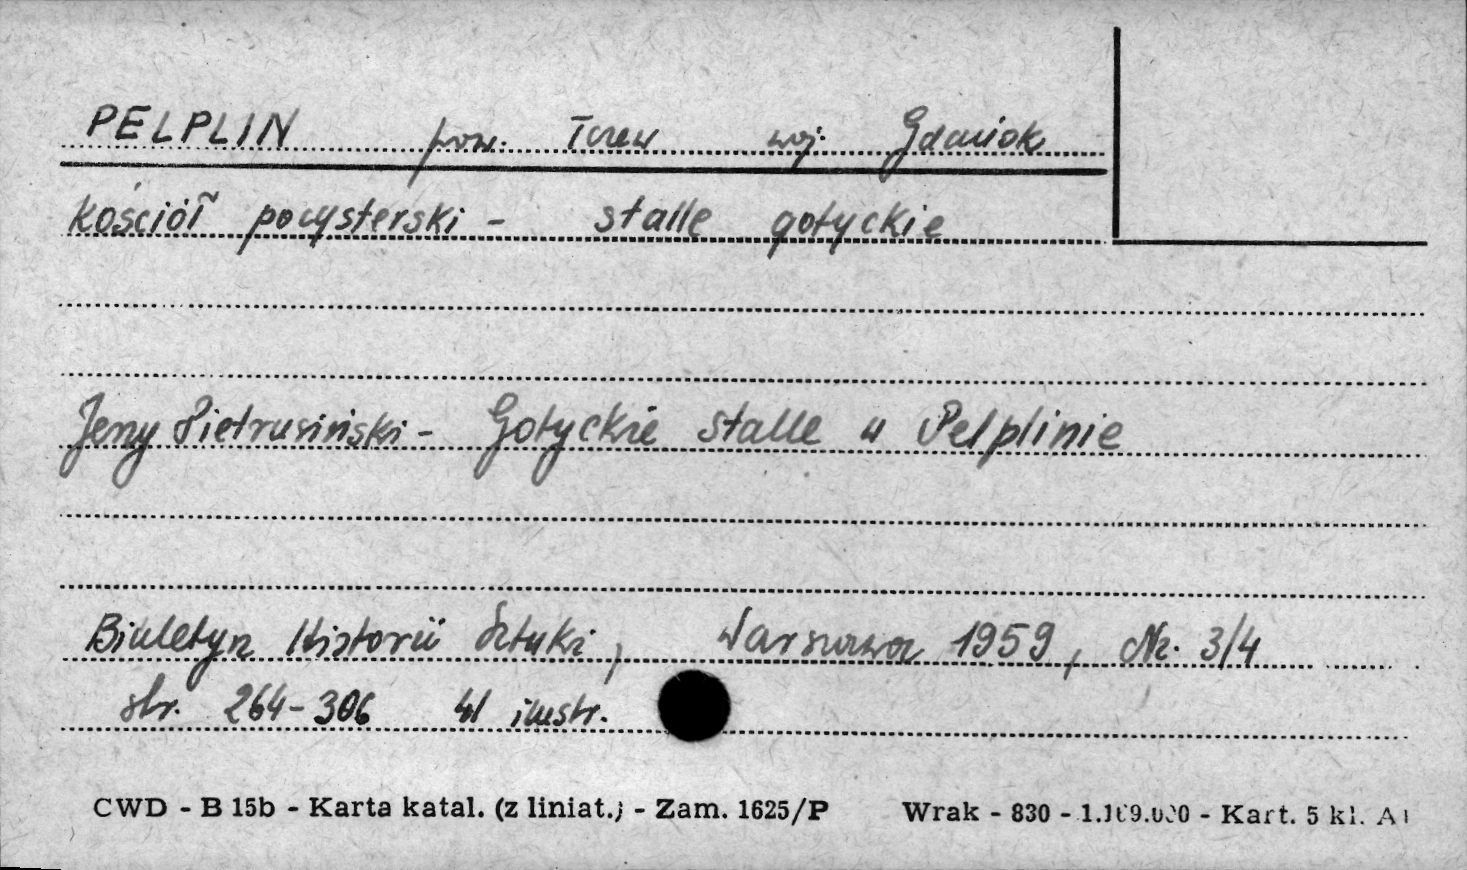 PELPLIN pow. Tczew woj. Gdańsk
kościół pocysterski - stalle gotyckie
Jerzy Pietrusiński - Gotyckie stalle w Pelplinie
Biuletyn Historii Sztuki, Warszawa 1959, Nr. 3/4
str. 264-306 41 ilustr.
CWD - B 15b - Karta katal. (z liniat.) - Zam. 1625/P Wrak - 830 - - Kart. 5 kl.